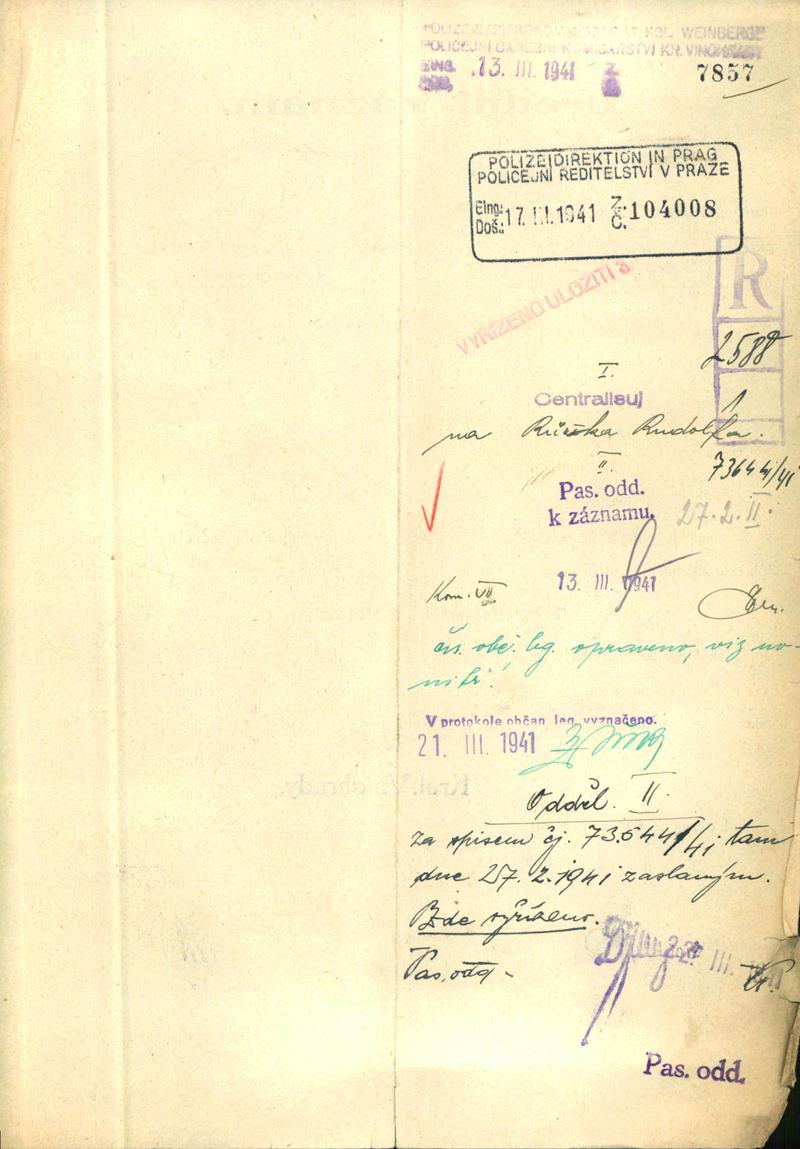 POLIZEIBEZIRKSKOMMISSARIAT KGL. WEINBERGE
POLICEJNÍ OKRESNÍ KOMISAŘSTVÍ KR. VINOHRADY
EING. 13. III. 1941 Z
DOŠ. Č 7857
POLIZEIDIREKTION IN PRAG
POLICEJNÍ ŘEDITELSTVÍ V PRAZE
Eing.: 17. III. 1941 Z.: 104008
Doš.: Č.
R
VYŘÍZENO ULOŽITI
2588
I.
Centralisuj 1
na Růžička Rudolfa.
II.
73644/41
Pas. odd.
k záznamu.
27. 2. II.
13. III. 1941
Kom. VII
čís. obč. lg. opraveno, viz uv-
nitř.
V protokole občan. leg. vyznačeno.
21. III. 1941
Odděl. II.
za spisem čj. 73.644/41 tam
dne 27. 2. 1941 zaslaným.
Zde vyřízeno.
22. III.
Pas. odd.
Pas. odd.